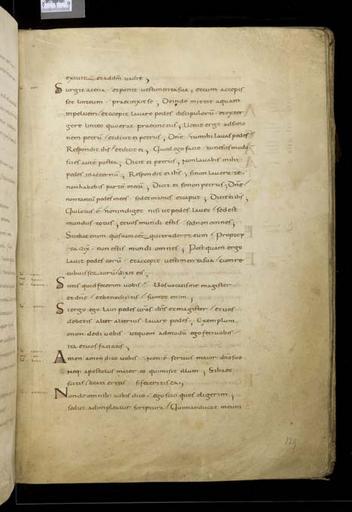 exivit et ad dm vadit
Surgit a cena et ponit vestimenta sua et cum accepis
set linteum praecinxit se Deinde mittit aquam
in pelvem et coepit lavare pedes discipulorū et exter
gere linteo quo erat praecinctus Venit ergo ad simo
nem petrū et dicit ei petrus Dne tu mihi lavas pedes
Respondit ihs et dixit ei Quod ego facio tu nescis modo
scies autē postea Dicit ei petrus Non lavabis mihi
pedes in aeternū Respondit ei ihs si non lavero te
non habebis partē mecū Dicit ei simon petrus Dne
non tantū pedes meos sed et manus et caput Dicit ei ihs
Qui lotus ē non indiget nisi ut pedes lavet sed est
mundus totus et vos mundi estis sed non omnes
Sciebat enim quisnam
non estis mundi omnes Postquam ergo
lavit pedes eorū et accepit vestimenta sua cum re
cubuisset iterū dixit eis
Scitis quid fecerim vobis Vos vocatis me magister
et dne et bene dicitis sum et enim
Si ergo ego lavi pedes vros dns et magister et vos
debetis alter alterius lavare pedes Exemplum
enim dedi vobis ut quem admodū ego feci vobis
ita et vos faciatis
Amen amen dico vobis non ē servus maior dno suo
neq apostolus maior eo qui misit illum Si haec
scitis beati eritis si feceritis ea
Non de omnibus vobis dico ego scio quos elegerim
sed ut adimpleatur scriptura Qui manducat mecum
129